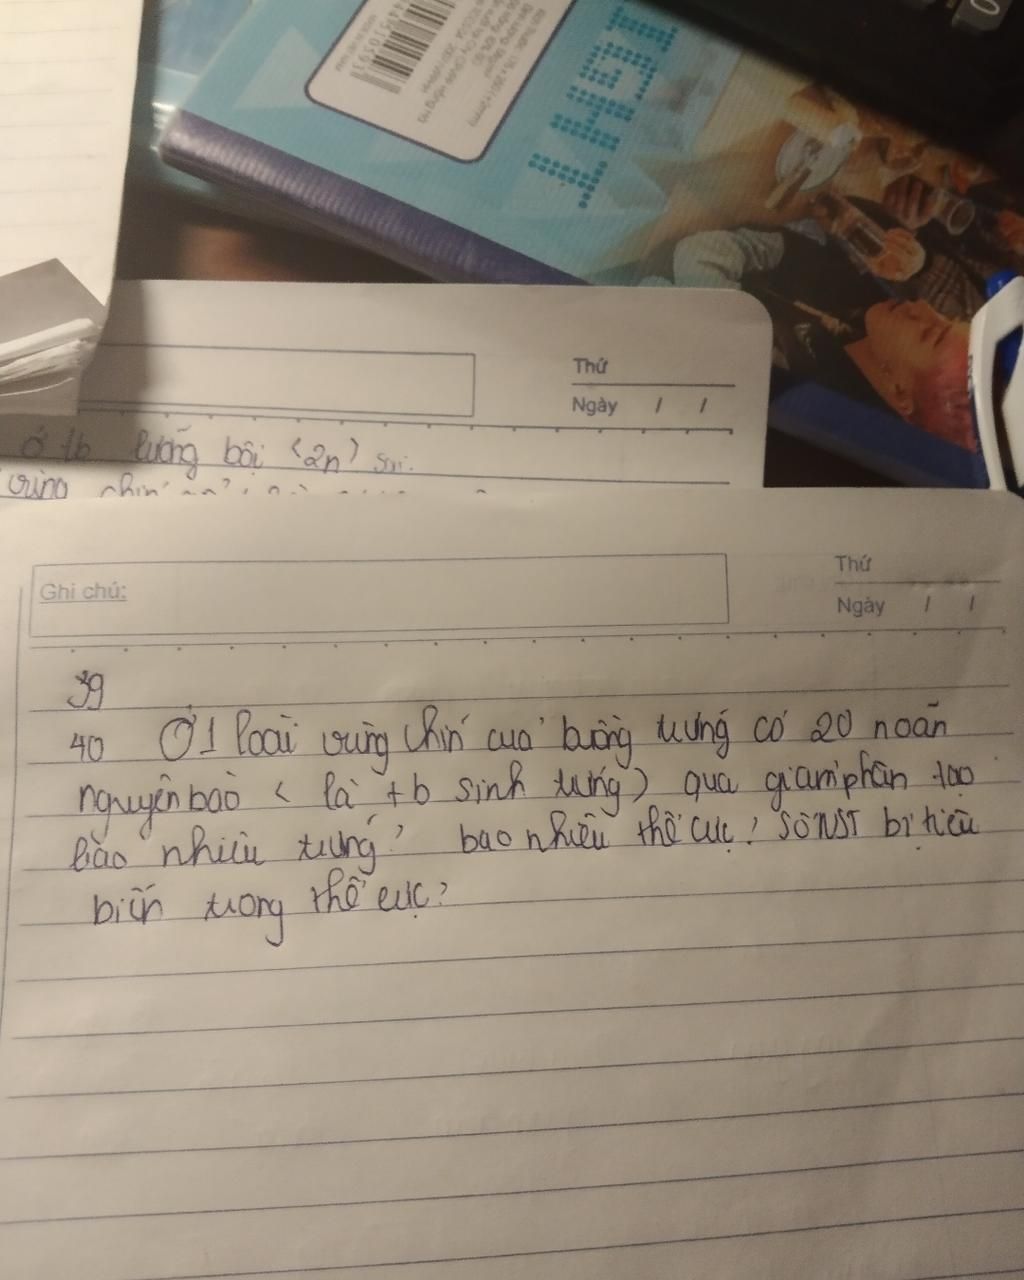 KLHEAT
Thứ
Ngày / /
ở tb lưỡng bội <2n) sơ.
vùng chín
Ghi chú:
Thứ
Ngày / /
39
40 Ở 1 loài vùng chín của buồng trứng có 20 noãn
nguyên bào < là tb sinh trứng) qua giảm phân tạo
bào nhiêu trứng? bao nhiêu thể cực? Số NST bị tiêu
biến trong thể cực?